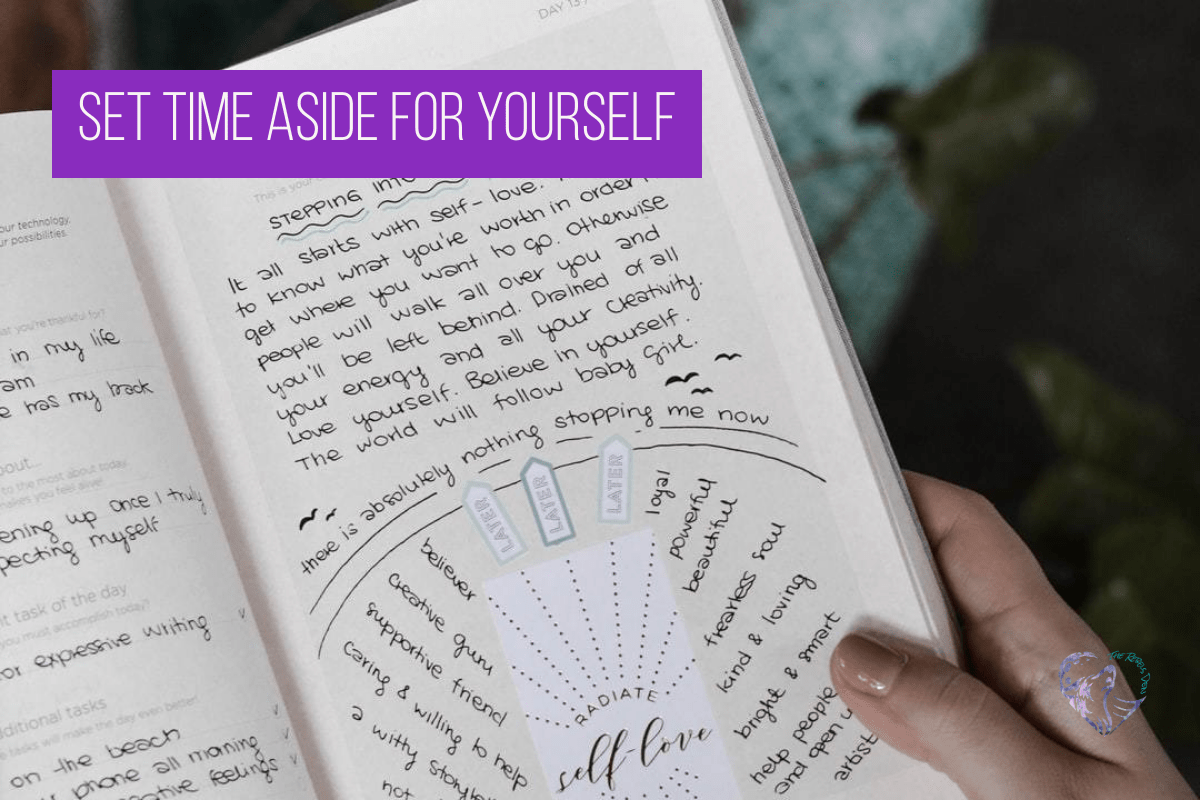 DAY 137
SET TIME ASIDE FOR YOURSELF
our technology,
ur possibilities.
at you're thankful for?
in my life
am
e has my back
bout...
to the most about today.
akes you feel alive!
ening up once I truly
pecting myself
nt task of the day
you must accomplish today?
or expressive writing
dditional tasks
e tasks will make the day even better.
on the beach
phone all morning
feelings
This is your
STEPPING INTO
It all starts with self-love.
to know what you're worth in order
get where you want to go. Otherwise
people will walk all over you and
you'll be left behind. Drained of all
your energy and all your creativity.
Love yourself. Believe in yourself.
The world will follow baby girl.
there is absolutely nothing stopping me now
LATER
LATER
LATER
believer
creative guru
supportive friend
caring & willing to help
a witty storytel
not
loyal
powerful
beautiful
fearless soul
kind & loving
bright & smart
help people
and open u
artist
RADIATE
self-love